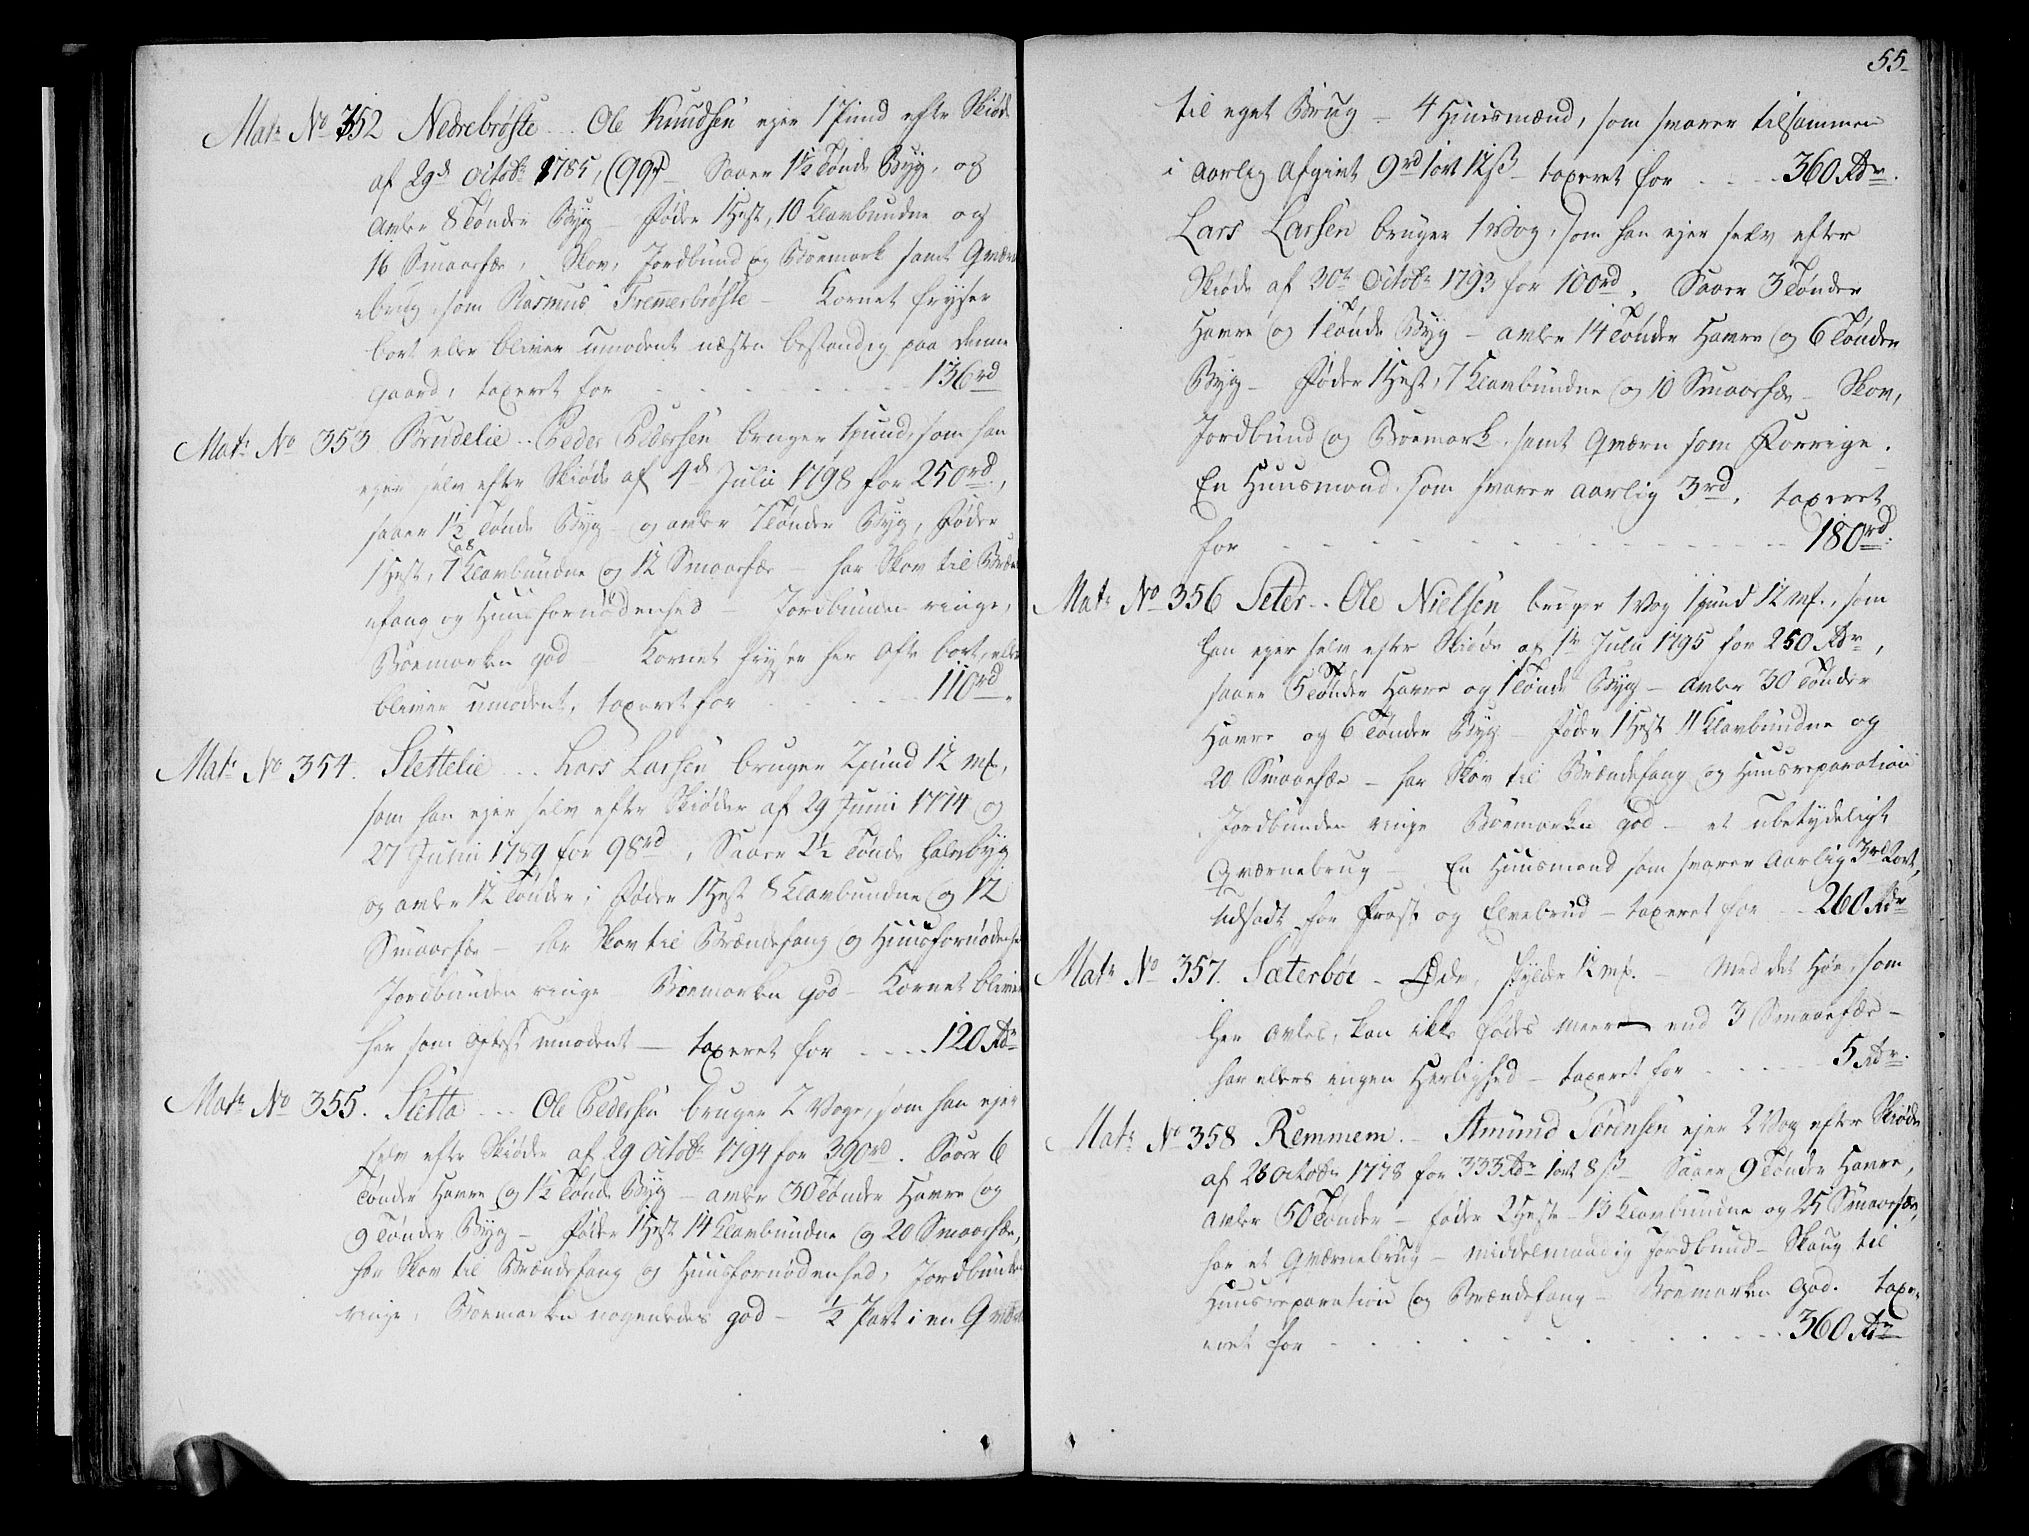 Mat: No 352 Nedrebrøste .. Ole Knudsen ejer 1 Pund efter Skiøde
af 29d: Octob: 1785, (99rd Saaer 1½ Tønde Byg, og
avler 8 Tønder Byg – Føder 1 Hest, 10 Klavbundne og
16 Smaafæ, Skov, Jordbund og Boemark samt Qværn
ebrug, som Rasmus Fremmerbrøste – Kornet fryser
bort eller bliver umodent næsten bestandig paa denne
Gaard, taxeret for - - - - - 136rd
Mat: No 353 Brudelie .. Peder Pedersen bruger 1 pund, som han
ejer selv efter Skiøde af 4d Julii 1798 for 250rd,
saaer 1½ Tønde Byg – og avler 7 Tønder Byg, Føder
1 Hest, 7 a 8 Klavbundne og 12 Smaafæ – har Skov til Brænd
efang og Huusfornødenhed – Jordbunden ringe,
Boemarken god – Kornet fryser her ofte bort, eller
bliver umodent, taxeret for - - - 110rd.
Mat: No 354. Slettelie ... Lars Larsen bruger 2 pund 12 mk,
som han ejer selv efter Skiøder af 29 Junii 1774 og
27 Junii 1789 for 98rd, Saaer 2½ Tønde halvbyg
og avler 12 Tønder; Føder 1 Hest 8 Klavbundne og 12
Smaafæ – har Skov til Brændefang og Huusfornødenhed
Jordbunden ringe – Boemarken god – Kornet bliver
her som oftest umodent – taxeret for .... 120 Rdr
Mat: No 355. Sletta ... Ole Pedersen bruger 2 Voger, som han ejer
selv efter Skiøde af 29 Octob: 1794 for 390rd. Saaer 6
Tønder Havre og 1½ Tønde Byg – avler 30 Tønder Havre og
9 Tønder Byg – Føder 1 Hest 14 Klavbundne og 20 Smaafæ,
har Skov til Brændefang og Huusfornødenhed, Jordbunden
ringe, Boemarken nogenledes god – ½ Part i en Qværn
55-
til eget Brug – 4 Huusmænd, som svarer tilsammen
i aarlig Afgivt 9rd 1ort 12ß – taxeret for - - - 360 Rdr.
Lars Larsen bruger 1 Vog, som han ejer selv efter
Skiøde af 30te Octob: 1793 for 100rd, Saaer 3 Tønder
Havre og 1 Tønde Byg – avler 14 Tønder Havre og 6 Tønder
Byg – Føder 1 Hest, 7 Klavbundne og 10 Smaafæ – Skov,
Jordbund og Boemark samt Qværn som Forrige.
En Huusmand som svarer aarlig 3rd, taxeret
for - - - - - - - - 180rd.
Mat: No 356 Seter .. Ole Nielsen bruger 1 Vog 1 pund 12 mk., som
han ejer selv efter Skiøde af 1te Julii 1795 for 250 Rdr,
saaer 5 Tønder Havre og 1 Tønde Byg – avler 30 Tønder
Havre og 6 Tønder Byg – Føder 1 Hest 11 Klavbundne og
20 Smaafæ – har Skov til Brændefang og Huusreparation
Jordbunden ringe Boemarken god – et ubetydeligt
Qværnebrug – En Huusmand som svarer Aarlig 3rd 2ort,
Udsadt for Frost og Elvebrud – taxeret for - - 260 Rdr
Mat: No 357. Sæterbøe – Øde, skylder 12 mk. – Med det Høe, som
her avles, kan ikke fødes meere end 3 Smaafæe –
har ellers ingen Herlighed – taxeret for - - - - 5 Rdr.
Mat: No 358 Remmem. – Amund Sørensen ejer 2 Vog efter Skiøde
af 28 Octobr 1778 for 333 Rdr 1ort 8ß – Saaer 9 Tønder Havre,
avler 50 Tønder – føder 2 Heste – 13 Klavbundne og 25 Smaafæ,
har et Qværnebrug – Middelmaadig Jordbund – Skoug til
Huusreparation og Brændefang – Boemarken god. taxe-
eret for - - - - - - - 360 Rdr